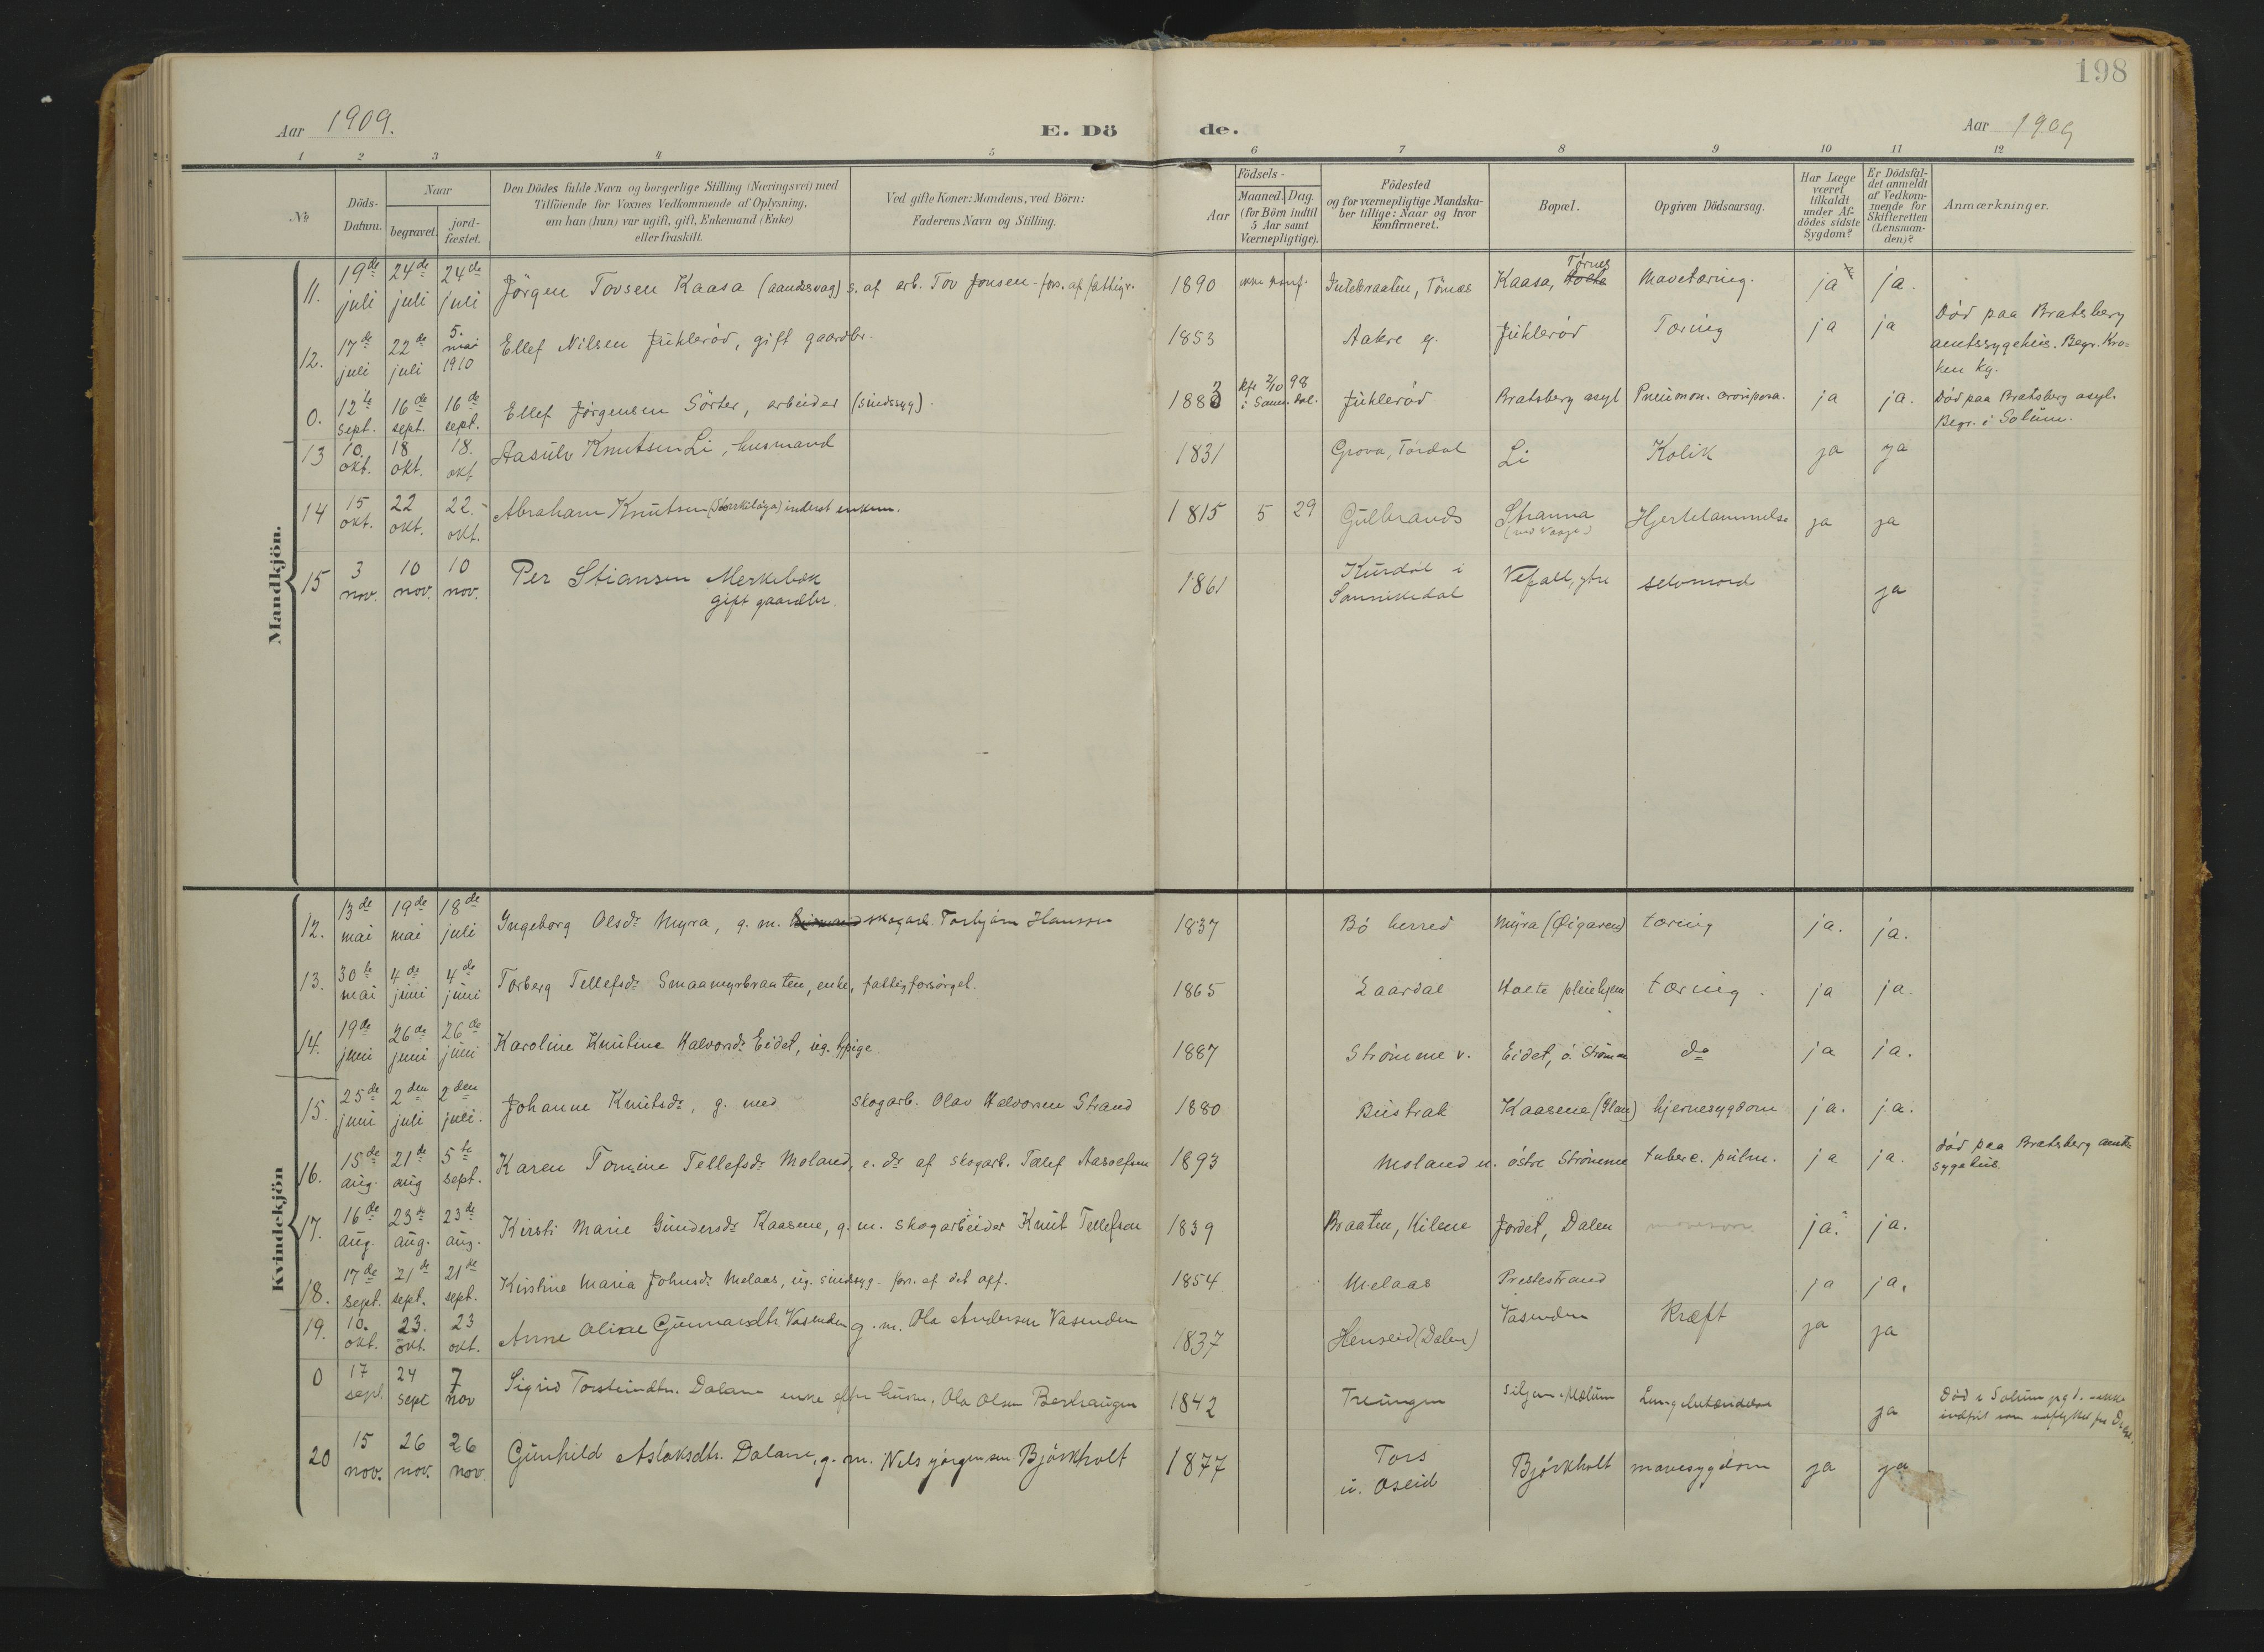 198
Aar 1909.
E. Dö de.
Aar 1909
1 2 3 4 5 6 7 8 9 10 11 12
No
Döds-Datum.
Naar
begravet.
jord-fæstet.
Den Dödes fulde Navn og borgerlige Stilling (Næringsvei) med
Tilföiende for Voxnes Vedkommende af Oplysning,
om han (hun) var ugift, gift, Enkemand (Enke)
eller fraskilt.
Ved gifte Koner: Mandens, ved Börn:
Faderens Navn og Stilling.
Födsels-
Aar
Maaned. Dag.
(for Börn indtil
5 Aar samt
Værnepligtige).
Födested
og for værnepligtige Mandska-
ber tillige: Naar og hvor
konfirmeret.
Bopæl.
Opgiven Dödsaarsag.
Har Læge
været
tilkaldt
under Af-
dödes sidste
Sygdom?
Er Dödsfal-
det anmeldt
af Vedkom-
mende for
Skifteretten
(Lensman-
den)?
Anmærkninger.
Mandkjön.
11. 19de juli 24de juli 24de juli Jörgen Tovsen Kaasa (aandssvag) s. af arb. Tov Jonsen - fors. af fattigv. 1890 ikke konf. Intebraaten, Törnes Kaasa, Törnes Mavetæring. ja ja.
12. 17de juli 22de juli 5. mai 1910 Ellef Nilsen Juklerød, gift gaardbr. 1853 Aakre Juklerød Tæring ja ja Död paa Bratsberg
amtssygehus. Begr. Kro-
ken kg.
0. 12te sept. 16de sept. 16de sept. Ellef Jörgensen Sörter, arbeider (sindssyg). 1883 kfr 2/10 98 i Sann. dal. Juklerød Bratsberg asyl Pneumon. ja ja. Död paa Bratsberg asyl.
Begr. i Solum.
13 10. okt. 18 okt. 18. okt Aasulv Knutsen Li, husmand 1831 Grova, Tördal Li Kolik ja ja
14 15 okt. 22 okt. 22. okt. Abraham Knutsen inderst enkem. 1815 5 29 Gulbrands Stranna Hjertelammelse ja ja
15 3 nov. 10 nov. 10 nov. Per Stiansen Merkebæk
gift gaardbr. 1861 Kurdöl i
Sannikedal Vefall, ytre selvmord ja
Kvindekjön
12. 13de mai 19de mai 18de juli Ingeborg Olsdr Myra, g. m. skogarb. Torbjörn Hansen 1837 Bö herred Myra (Öigaren) tæring ja. ja.
13. 30te mai 4de juni 4de juni Torberg Tellefsdr Smaamyrbraaten, enke, fattigforsörget. 1865 Laardal Holte pleiehjem tæring. ja ja.
14. 19de juni 26de juni 26de juni Karoline Knutine Halvorsdr Eidet, ug. pige 1887 Strömme v. Eidet, ö. Strömme do ja ja.
15. 25de juni 2den juli 2den juli. Johanne Knutsdr, g. med skogarb. Olav Halvorsen Strand 1880 Bustrak Kaasene hjernesygdom ja. ja.
16. 15de aug. 21de aug 5te sept. Karen Tomine Tellefsdr Moland, e. dr af skogarb. Tellef Aassefsen 1893 Moland u. östre Strömme tuberc. pulm. ja ja. död paa Bratsberg amts
sygehus.
17. 16de aug. 23de aug. 23de aug. Kirsti Marie Gundersdr Kaasene, g. m. skogarbeider Knut Tellefsen 1839 Braaten, Kilene Jordet, Dalen ja. ja.
18. 17de sept. 21de sept. 21de sept. Kirstine Maria Johnsdr Melaas, ug. sindssyg - fors. af det off. 1854 Melaas Prestestrand ja ja.
19. 10. okt. 23. okt. 23 okt. Anne Oline Gunnarsdtr. Vasenden g. m. Ola Andersen Vasenden 1837 Henseid (Dalen) Vasenden Kræft ja ja
0 17 sept. 24 sept 7 nov Sigrid Torsteinsdtr. Dalane enke efter husm. Ola Olsen Berhaugen 1842 Treungen Siljan, Mælum Lungebetændelse ja Död i Solum pgd.
20 15 nov. 26 nov. 26 nov. Gunhild Aslaksdtr. Dalane, g. m. Nils Jörgensen Björkholt 1877 Tors
u. Oseid Björkholt mavesygdom ja ja